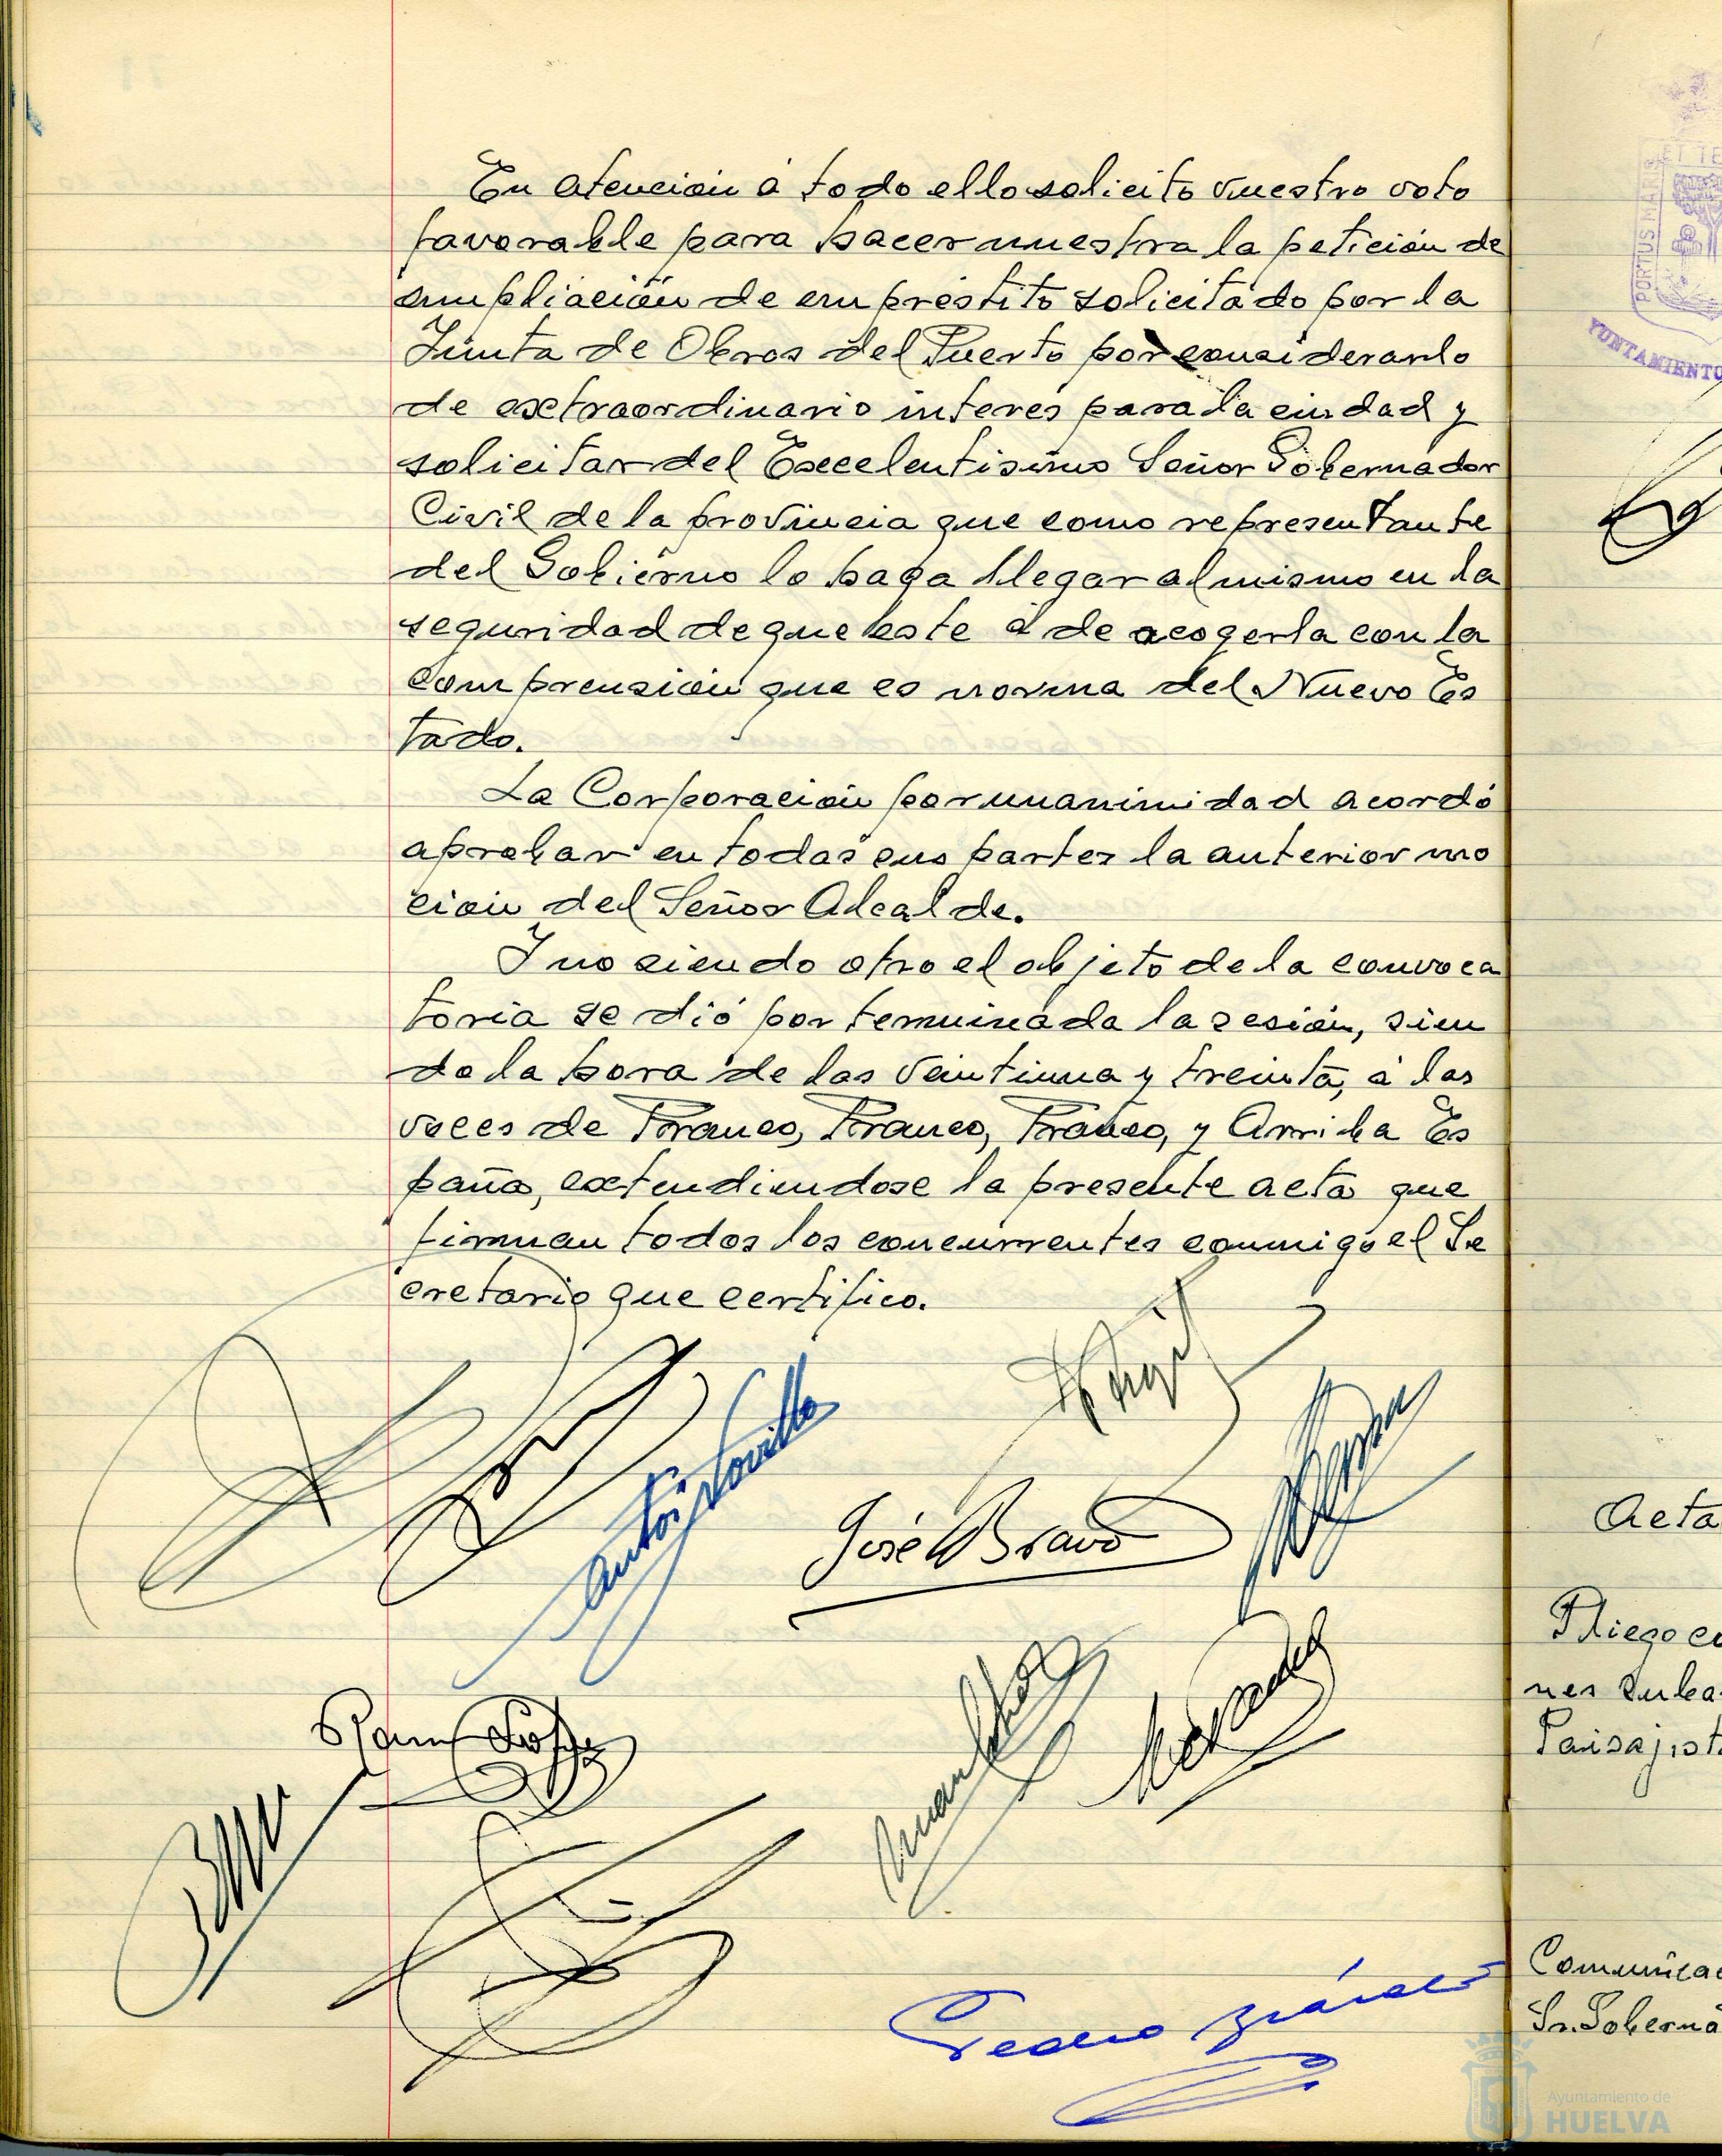 En atencion á todo ello solicito vuestro voto
favorable para hacer nuestra la petición de
ampliación de empréstito solicitado por la
Junta de Obras del Puerto por considerarlo
de extraordinario interés para la ciudad y
solicitar del Excelentisimo Señor Gobernador
Civil de la provincia que como representante
del Gobierno lo haga llegar al mismo en la
seguridad de que este á de acogerla con la
comprensión que es norma del Nuevo Es
tado.
La Corporación por unanimidad acordó
aprobar en todas sus partes la anterior mo
ción del Señor Alcalde.
Y no siendo otro el objeto de la convoca
toria se dió por terminada la sesión, sien
do la hora de las veintiuna y treinta, á las
voces de Franco, Franco, Franco, y Arriba Es
paña, extendiendose la presente acta que
firman todos los concurrentes conmigo el Se
cretario que certifico.
José Bravo
Pedro
ET TE
PORTUS MARIS
YUNTAMIENTO
Acta
Pliego
nes
Paisajist
Comunicac
Sr. Goberna
Ayuntamiento de
HUELVA